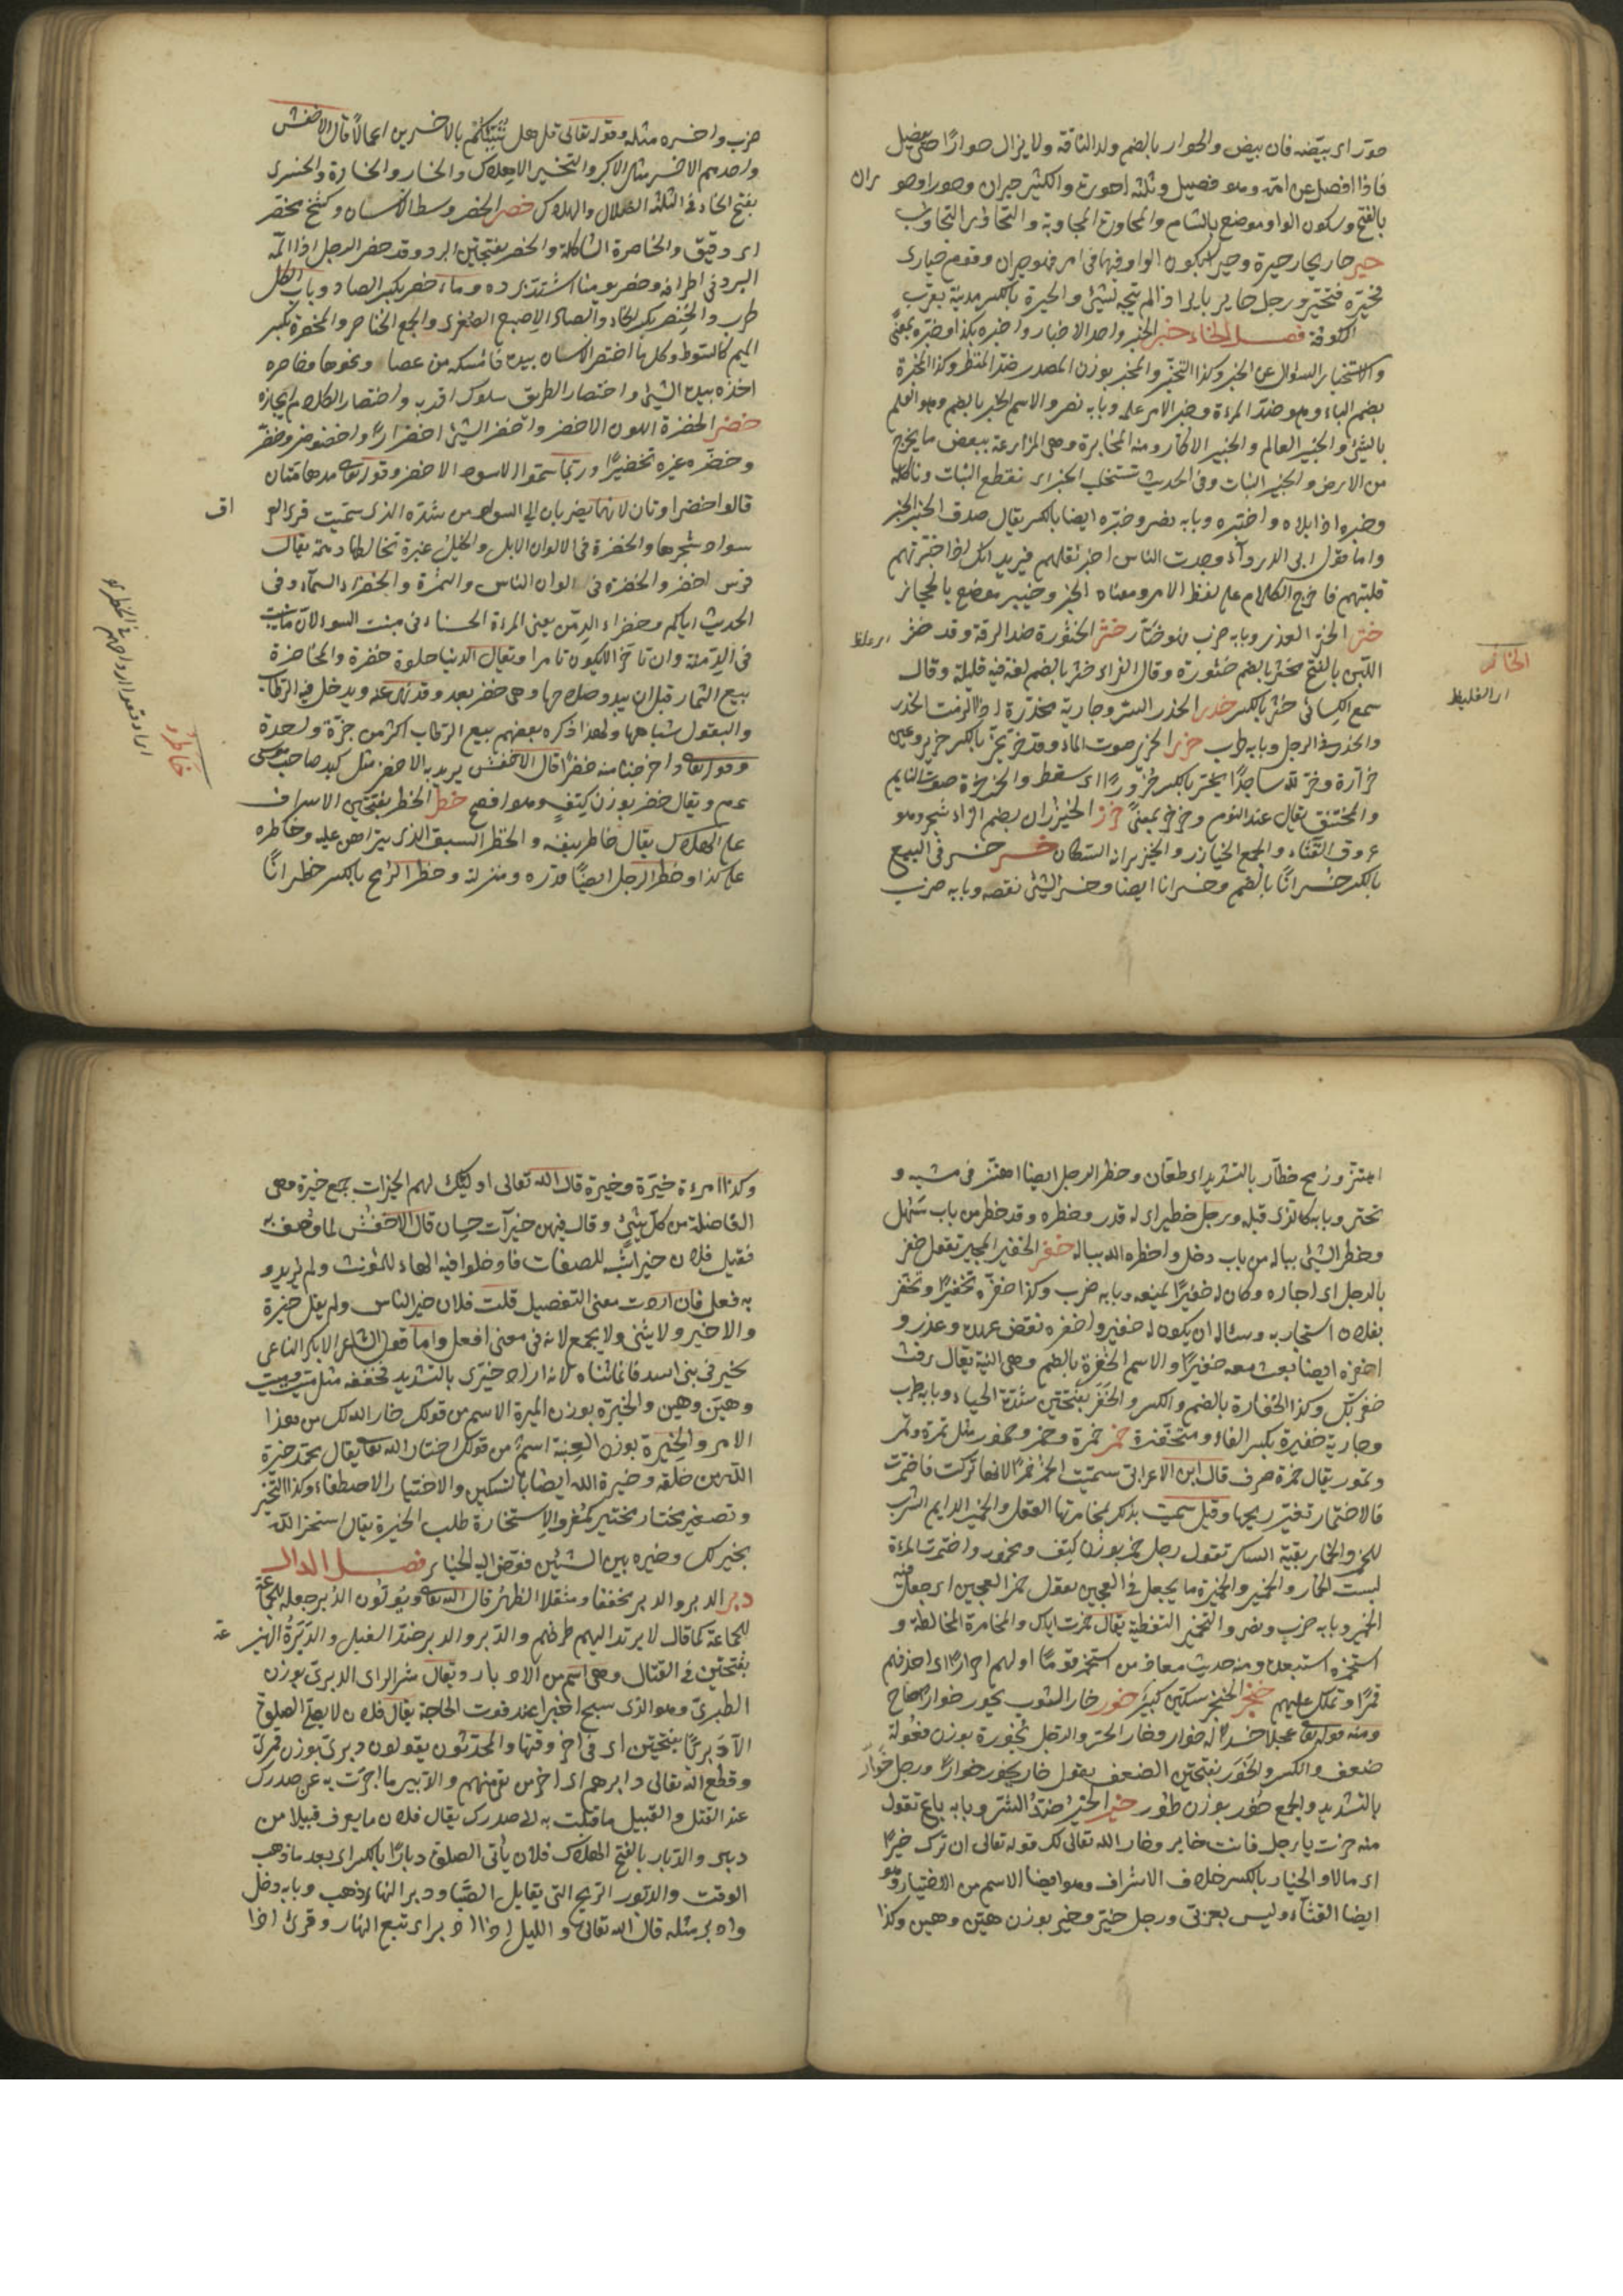 حوّر اى بيّضه فان بيض والحوار بالضم ولد الناقة ولا يزال حوارًا حتى يفصل
فاذا افصل عن امّه وهو فصيل وثلثة احورة والكثير حيران وحورا وحو ران
بالفتح وسكون الواو موضع بالشام والمحاورة المجاوبة والتحاور التجاوب
حير حار يحار حيرة وحيرا بسكون الواو فيهما فى امر فهو حيران وقوم حيارى
فحيّره فتحيّر ورجل حاير باير اذا لم يتجه لشئ والحيرة بالكسر مدينة بقرب
الكوفة فصل الخاء خبر الخبر واحد الاخبار واخبره بكذا وخبّره بمعنًى
والاستخبار السؤال عن الخبر وكذا التخبّر والمخبر بوزن المصدر ضدّ المنظر وكذا المخبرة
بضم الباء وهو ضدّ المرءة وخبر الامر علمه وبابه نصر والاسم الخبر بالضم وهو العلم
بالشئ والخبير العالم والخبير الاكّار ومنه المخابرة وهى المزارعة ببعض ما يخرج
من الارض والخبير النبات وفى الحديث نستخلب الخبير اى نقطع النبات وناكله
وخبره اذا بلاه واختبره وبابه نصر وخبره ايضا بالكسر يقال صدق الخبر الخبر
واما قول ابى الدرداء وجدت الناس اخبر تقلهم فيريد انك اذا خبرتهم
قليتهم فاخرج الكلام على لفظ الامر ومعناه الخبر وخيبر موضع بالحجاز
ختر الختر الغدر وبابه ضرب فهو ختّار خثر الخثورة ضد الرقة وقد خثر اى غلظ
اللبن بالفتح يخثر بالضم خثورة وقال الفراء خثر بالضم لغة فيه قليلة وقال
سمع الكسائى خثر بالكسر خدر الخدر الستر وجارية مخدّرة اذا الزمت الخدر
والخدر فى الرجل وبابه طرب خرر الخرير صوت الماء وقد خرّ يخرّ بالكسر خرير وعين
خرّارة وخرّ لله ساجدًا يخرّ بالكسر خرورًا اى سقط والخرخرة صوت النايم
والمختنق يقال عند النوم وخرخر بمعنًى خزر الخيزران بضم الزاء شجر وهو
عروق القناء والجمع الخيازر والخيزرانة السكّان خسر خسر فى البيع
بالكسر خسرانًا بالضم وخسرانا ايضا وخسر الشئ نقصه وبابه ضرب
الخاثر
اى الغليظ
ضرب واخسره مثله وقوله تعالى قل هل ننبّئكم بالاخسرين اعمالًا قال الاخفش
واحدهم الاخسر مثل الاكبر والتخسير الاهلاك والخسار والخسارة والخسرى
بفتح الخاء فى الثلثة الضلال والهلاك خصر الخصر وسط الانسان وكشح مخصّر
اى دقيق والخاصرة الشاكلة والخصر بفتحتين البرد وقد خصر الرجل اذا آلمه
البرد فى اطرافه وخصر يومنا اشتدّ برده وماء خصر بكسر الصاد وباب الكل
طرب والخنصر بكسر الخاء والصاد الاصبع الصغرى والجمع الخناصر والمخصرة بكسر
الميم كالسوط وكل ما اختصر الانسان بيده فامسكه من عصا ونحوها وخاصره
اخذه بيده فى المشى واختصار الطريق سلوك اقربه واختصار الكلام ايجازه
خضر الخضرة اللون الاخضر واخضرّ الشئ اخضرارًا واخضوضر وخضّر
وخضّره غيره تخضيرًا وربّما سمّوا الاسود الاخضر وقوله تعالى مدهامّتان
قالوا خضراوتان لانهما يضربان الى السواد من شدّة الرىّ وسمّيت قرى العراق
سوادًا لكثرة شجرها والخضرة فى الالوان الابل والخيل غبرة تخالطها دهمة يقال
فرس اخضر والخضرة فى الوان الناس والسمرة والخضراء السماء وفى
الحديث اياكم وخضراء الدمن يعنى المرءة الحسناء فى منبت السوء لانّ ما ينبت
فى الدمنة وان كان ناضرا لا يكون تامرا ويقال الدنيا حلوة خضرة والمخاضرة
بيع الثمار قبل ان يبدو صلاحها وهى خضر بعد وقد نهى عنه ويدخل فيه الرطاب
والبقول شباهها ولهذا ذكره بعضهم بيع الرطاب اكثر من جزّة واحدة
وقوله تعالى فاخرجنا منه خضرًا قال الاخفش يريد به الاخضر مثل كبد صاحب موسى
عم ويقال خضر بوزن كتف وهو افصح خطر الخطر بفتحتين الاشراف
على الهلاك يقال خاطر بنفسه والخطر السبق الذى يتراهن عليه وخاطره
على كذا وخطر الرجل ايضًا قدره ومنزلته وخطر الرمح بالكسر خطرانًا
خاطروا
اى اوقعوا ارواحهم فى الخطر
اهتزّ ورمح خطّار بالتشديد اى طعّان وخطر الرجل ايضا اهتزّ فى مشيه و
تبختر وبابه كالذى قبله ورجل خطير اى له قدر وخطره وقد خطر من باب سهل
وخطر الشئ بباله من باب دخل واخطره الله بباله خفر الخفير المجير تقول خفر
بالرجل اى اجاره وكان له خفيرًا يمنعه وبابه ضرب وكذا خفّره تخفيرًا وتخفّر
بفلان استجار به وسئاله ان يكون له خفيرا واخفره نقض عهده وغدر و
اخفره ايضا بعث معه خفيرًا والاسم الخفرة بالضم وهى الذمة يقال وفت
خفرتك وكذا الخفارة بالضم والكسر والخفر بفتحتين شدّة الحياء وبابه طرب
وجارية خفرة بكسر الفاء ومتخفّرة خمر خمرة وخمر وخمور مثل تمرة وتمر
وتمور يقال خمرة صرف قال ابن الاعرابى سميت الخمر خمرًا لانها تركت فاختمرت
فالاختمار تغيّر ريحها وقيل سميت بذلك لمخامرتها العقل والخمير الدايم الشرب
للخمر والخمار بقية السكر تقول رجل خمر بوزن كتف ومخمور واختمرت المرءة
لبست الخمار والخمير والخميرة ما يجعل فى العجين تقول خمر العجين اى جعل فيه
الخمير وبابه ضرب ونصر والتخمير التغطية يقال خمّرت اناك والمخامرة المخالطة و
استخمره استبعده ومنه حديث معاذ من استخمر قومًا اولهم احرارًا اى اخذهم
قهرًا وتملّك عليهم خنجر الخنجر سكّين كبير خور خار الثور يخور خوارًا صاح
ومنه قوله تعالى عجلًا جسدًا له خوار وخار الحرّ والرجل خؤورة بوزن فعولة
ضعف وانكسر والخور بفتحتين الضعف يقول خار يخور خوارًا ورجل خوّار
بالتشديد والجمع خور بوزن طور خير الخير ضدّ الشرّ وبابه باع تقول
منه خرت يا رجل فانت خاير وخار الله تعالى لك قوله تعالى ان ترك خيرًا
اى مالا والخيار بالكسر خلاف الاشرار وهو ايضا الاسم من الاختيار وهو
ايضا القثّاء وليس بعربىّ ورجل خيّر وخير بوزن هيّن وهين وكذا
وكذا امرءة خيّرة وخيرة قال الله تعالى اولئك لهم الخيرات جمع خيرة وهى
الفاضلة من كلّ شئ وقال فيهن خيرات حسان قال الاخفش لما وصف به
فقيل فلان خير اشبه الصفات فادخلوا فيه الهاء للمؤنث ولم يريدو
به فعل فان اردت معنى التفضيل قلت فلان خير الناس ولم يقل خيرة
والاخير ولا يثنى ولا يجمع لانه فى معنى افعل واما قول الشاعر الا بكر الناعى
بخير فى بنى اسد فانما ثناه لانه اراد خيّرى بالتشديد فخففه مثل ميّت وميت
وهيّن وهين والخيرة بوزن الميرة الاسم من قولك خار الله لك من هذا
الامر والخيرة بوزن العنبة اسم من قولك اختار الله تعالى يقال محمّد خيرة
الله من خلقه وخيرة الله ايضا بالتسكين والاختيار الاصطفاء وكذا التخيّر
وتصغير مختار مخيّر كمغيّر والاستخارة طلب الخيرة يقال استخر الله
يخر لك وخيره بين الشيئين فوّض اليه الخيار فصل الدال
دبر الدبر والدبر مخففا ومثقلا الظهر قال الله تعالى ويولّون الدبر جعله للجماعة
للجماعة كما قال لا يرتد اليهم طرفهم والدبر والدبر ضدّ القبل والدبرة الهزيمة
بفتحتين فى القتال وهى اسم من الادبار ويقال شر الراى الدبرى بوزن
الطبرىّ وهو الذى يسنح اخيرا عند فوت الحاجة يقال فلان لا يصلّى الصلوة
الّا دبريًّا بفتحتين اى فى آخر وقتها والمحدّثون يقولون دبرىّ بوزن قمرىّ
وقطع الله تعالى دابرهم اى آخر من بقى منهم والدبير ما ادبرت به عن صدرك
عند الفتل والقبيل ما قبلت به الى صدرك يقال فلان ما يعرف قبيلا من
دبير والدبار بالفتح الهلاك فلان يأتى الصلوة دبارًا بالكسر اى بعد ما ذهب
الوقت والدبور الريح التى تقابل الصّبا ودبر النهار ذهب وبابه دخل
وادبر مثله قال الله تعالى والليل اذا ادبر اى تبع النهار وقرئ اذا